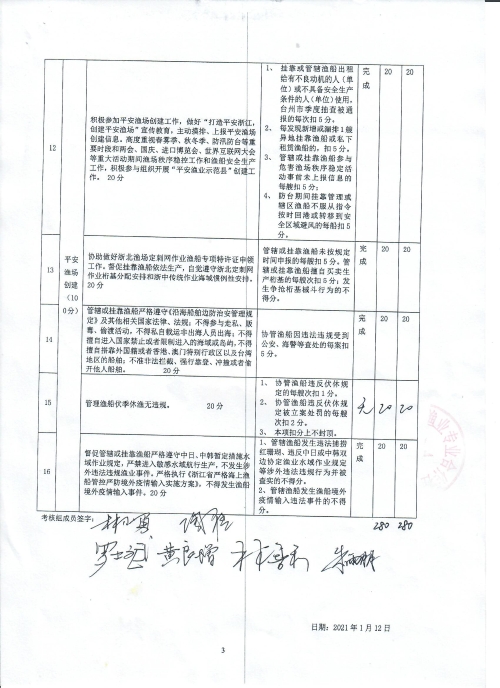 12
积极参加平安渔场创建工作，做好“打造平安浙江，
创建平安渔场”宣传教育，主动摸排、上报平安渔场
创建信息。高度重视春雾季、秋冬季、防汛防台等重
要时段和两会、国庆、进口博览会、世界互联网大会
等重大活动期间渔场秩序稳控工作和渔船安全生产
工作，积极参与组织开展“平安渔业示范县”创建工
作。 20分
1、 挂靠或管辖渔船出租
给有不良动机的人（单
位）或不具备安全生产
条件的人（单位）使用，
台州市季度抽查被通
报的每次扣5分。
2、 每发现新增或漏排1艘
异地挂靠渔船或私下
租赁渔船的，扣5分。
3、 管辖或挂靠渔船参与
危害渔场秩序稳定活
动事前未上报信息的
每艘扣5分；
4、 防台期间挂靠管理或
辖区渔船不服从指令
按时回港或转移到安
全区域避风的每船扣5
分。
完
成
20
20
平安
渔场
创建
（10
0分）
13
协助做好浙北渔场定刺网作业渔船专项特许证申领
工作。督促挂靠渔船依法生产，自觉遵守浙北定刺网
作业桁基分配安排和浙中传统作业海域惯例性安排。
20分
管辖或挂靠渔船未按规定
时间申报的每艘扣5分；管
辖或挂靠渔船擅自买卖生
产桁基的每艘次扣5分；发
生争抢桁基械斗行为的不
得分。
完
成
20
20
14
管辖或挂靠渔船严格遵守《沿海船舶边防治安管理规
定》及其他相关国家法律、法规；不得参与走私、贩
毒、偷渡活动，不得私自载运非出海人员出海；不得
擅自进入国家禁止或者限制进入的海域或岛屿，不得
擅自搭靠外国籍或者香港、澳门特别行政区以及台湾
地区的船舶；不准非法拦截、强行靠登、冲撞或者偷
开他人船舶。 20分
协管渔船因违法违规受到
公安、海警等查处的每案扣
5分。
完
成
20
20
15
管理渔船伏季休渔无违规。 20分
1、 协管渔船违反伏休规
定的每艘次扣1分。
2、 协管渔船违反伏休规
定被立案处罚的每艘
次扣2分；
3、 本项扣分上不封顶。
无
20
20
16
督促管辖或挂靠渔船严格遵守中日、中韩暂定措施水
域作业规定，严禁进入敏感水域航行生产，不发生涉
外违法违规渔业事件。严格执行《浙江省严格海上渔
船管控严防境外疫情输入实施方案》，不得发生渔船
境外疫情输入事件。20分
1、管辖渔船发生违法捕捞
红珊瑚、违反中日或中韩双
边协定渔业水域作业规定
等涉外违法违规行为并被
查实的不得分。
2、管辖渔船发生渔船境外
疫情输入违法事件的不得
分。
完
成
20
20
考核组成员签字：
280 280
日期：2021年1月12日
3